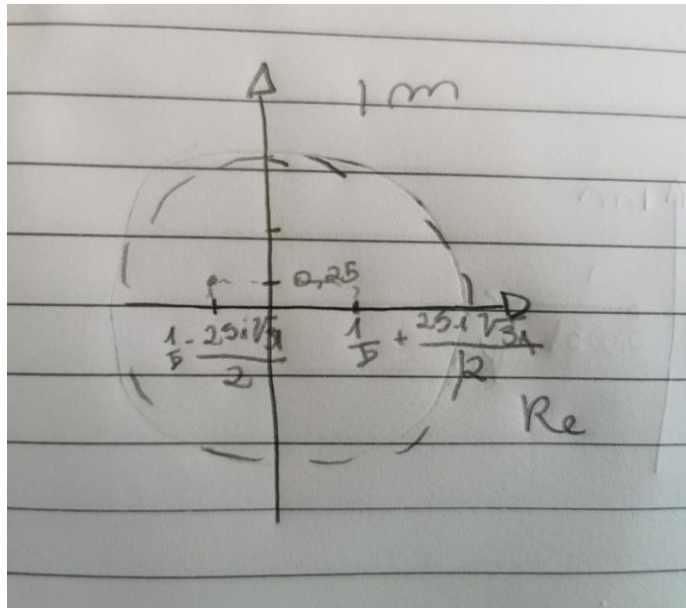 Im
0,25
1/5 - 25i√31/2
1/5 + 25i√31/2
Re